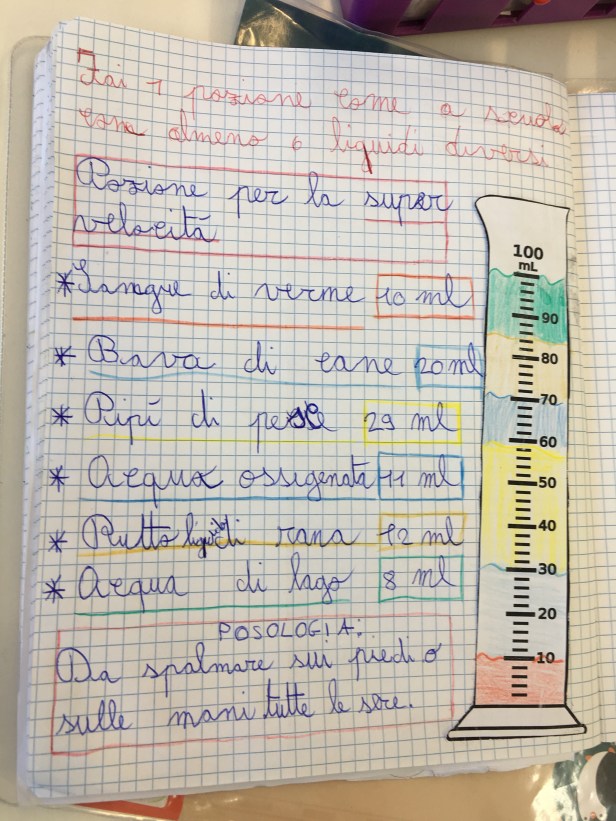 Fai 1 pozione come a scuola
con almeno 6 liquidi diversi
Pozione per la super
velocità
* Sangue di verme 10 ml
* Bava di cane 20 ml
* Pipì di pesce 29 ml
* Acqua ossigenata 11 ml
* Rutto liquido di rana 12 ml
* Acqua di lago 8 ml
POSOLOGIA:
Da spalmare sui piedi o
sulle mani tutte le sere.
100
mL
90
80
70
60
50
40
30
20
10